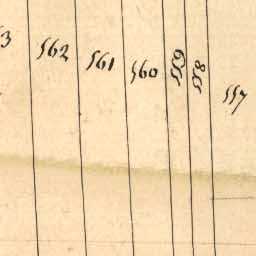 3 562 561 560 559 558 557